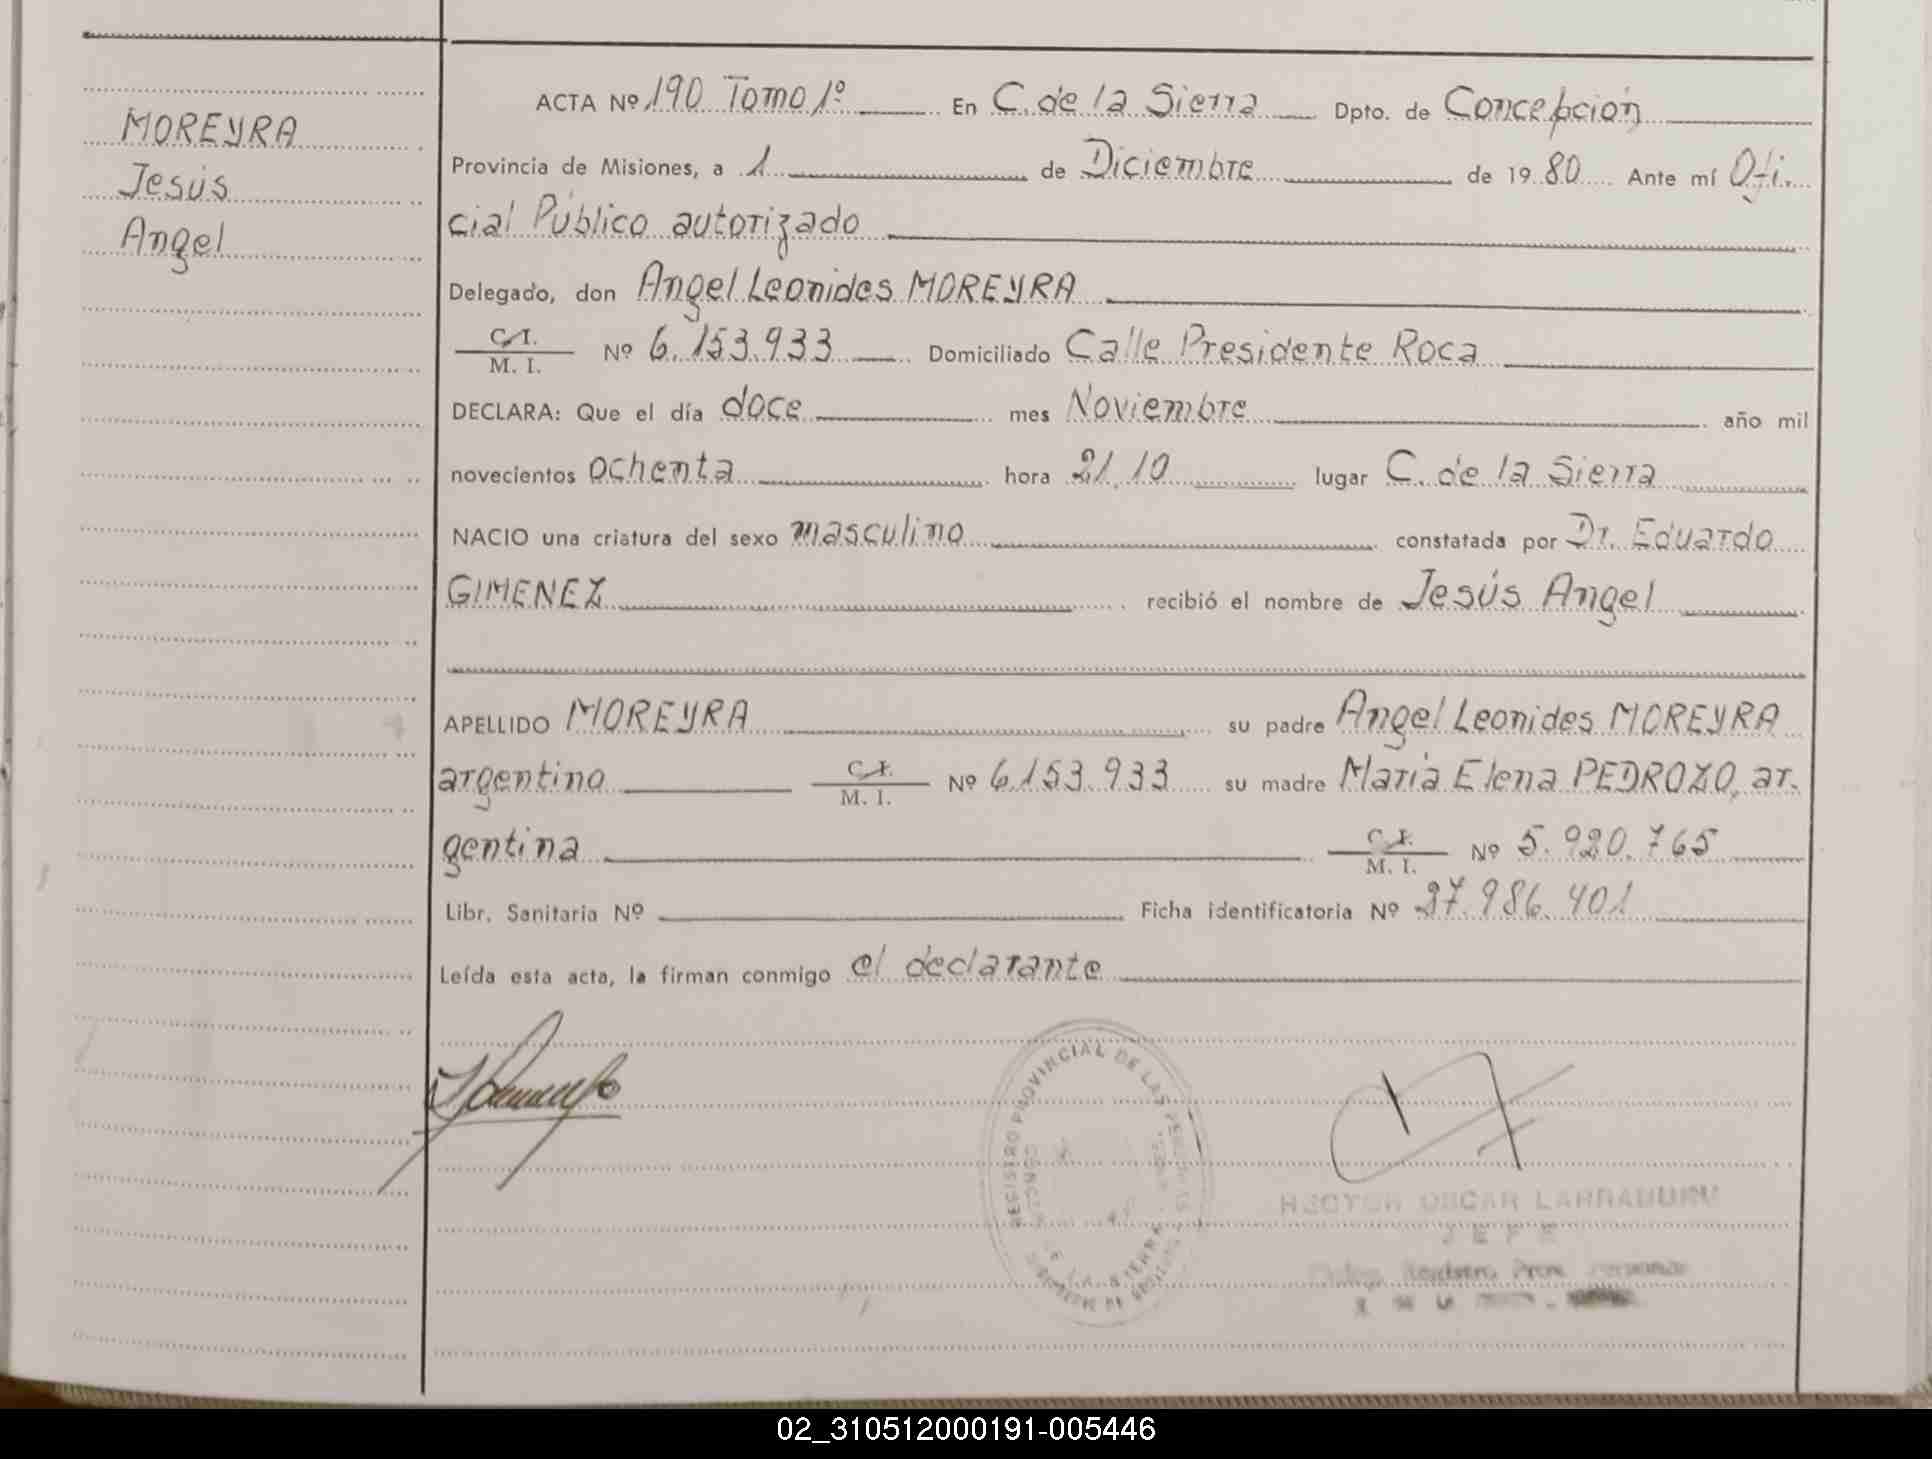 MOREYRA
Jesús
Angel
ACTA Nº 190 Tomo 1º En C. de la Sierra Dpto. de Concepción
Provincia de Misiones, a 1 de Diciembre de 1980 Ante mí Ofi.
cial Público autorizado
Delegado, don Angel Leonides MOREYRA
C. I.
M. I. Nº 6.153.933 Domiciliado Calle Presidente Roca
DECLARA: Que el día doce mes Noviembre año mil
novecientos ochenta hora 21,10 lugar C. de la Sierra
NACIO una criatura del sexo masculino constatada por Dr. Eduardo
GIMENEZ recibió el nombre de Jesús Angel
APELLIDO MOREYRA su padre Angel Leonides MOREYRA
argentino C. I. M. I. Nº 6.153.933 su madre María Elena PEDROZO, ar.
gentina C. I. M. I. Nº 5.920.765
Libr. Sanitaria Nº Ficha identificatoria Nº 27.986.401
Leída esta acta, la firman conmigo el declarante
REGISTRO PROVINCIAL DE LAS PERSONAS
HECTOR OSCAR LARRABURU
JEFE
02_310512000191-005446